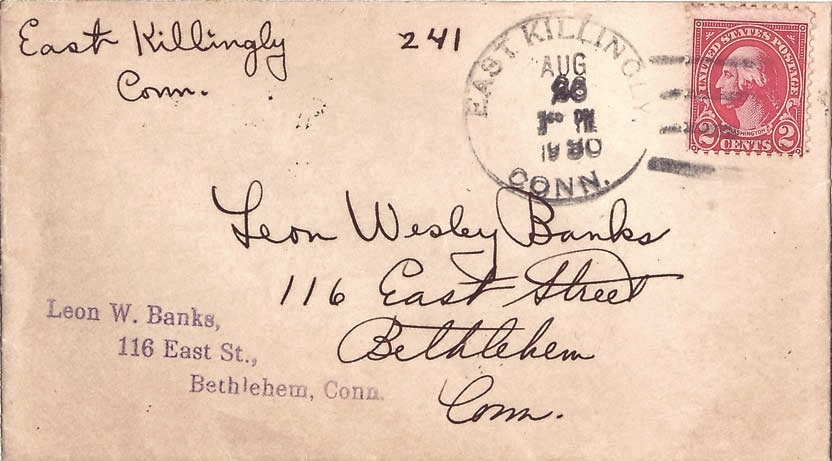 East Killingly 241
Conn.
EAST KILLINGLY
AUG
26
PM
1930
CONN.
UNITED STATES POSTAGE
WASHINGTON
2 CENTS 2
Leon Wesley Banks
116 East Street
Bethlehem
Conn.
Leon W. Banks,
116 East St.,
Bethlehem, Conn.